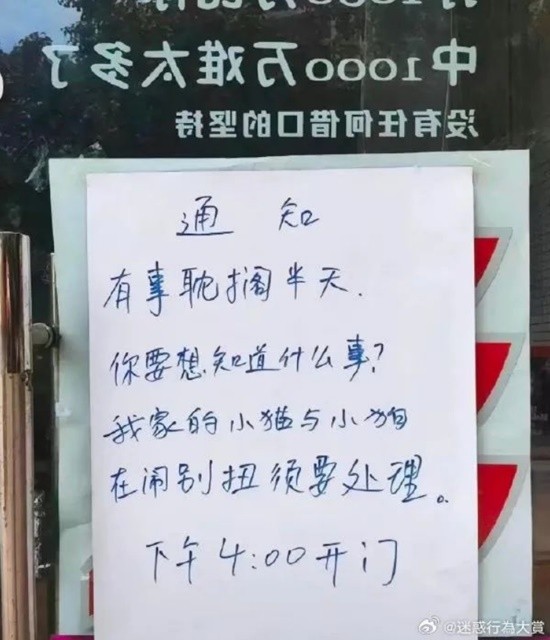 中1000万难太多了
没有任何借口的坚持
通知
有事耽搁半天.
你要想知道什么事?
我家的小猫与小狗
在闹别扭须要处理。
下午4:00开门
@迷惑行為大賞